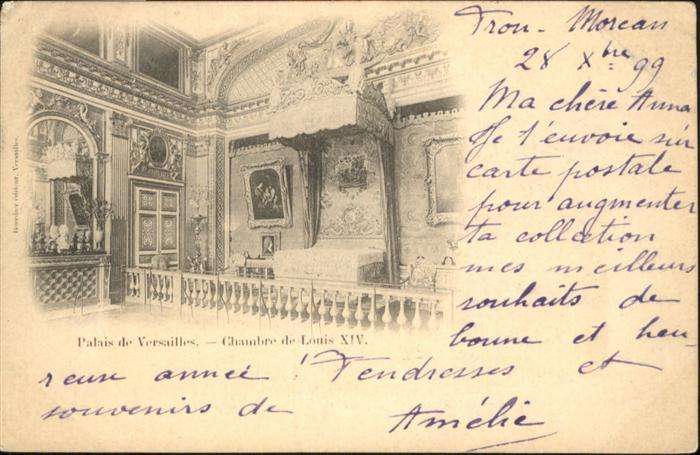 Tron-Morean
28 Xbre 99
Ma chère Anna
Je t'envoie sur
carte postale
pour augmenter
ta collection
mes meilleurs
souhaits de
bonne et heu-
reuse année ! Tendresses et
souvenirs de Amélie
Palais de Versailles. — Chambre de Louis XIV.
éditeur, Versailles.